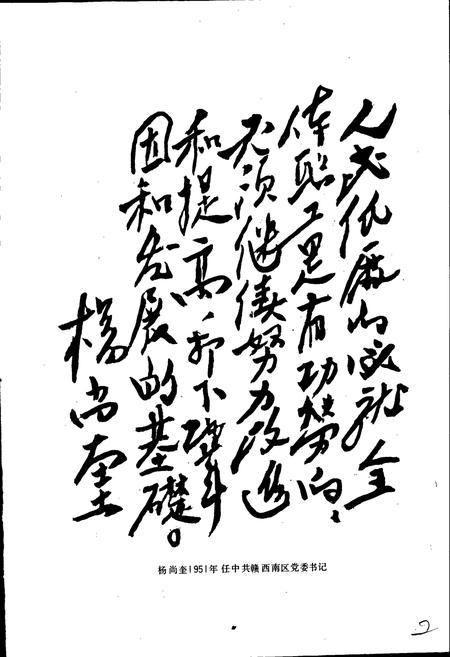 人民廠的成就全
体职工是有功劳的、
须继续努力改进
和提高，打下鞏
固和发展的基礎。
楊尚奎
杨尚奎1951年任中共赣西南区党委书记
2